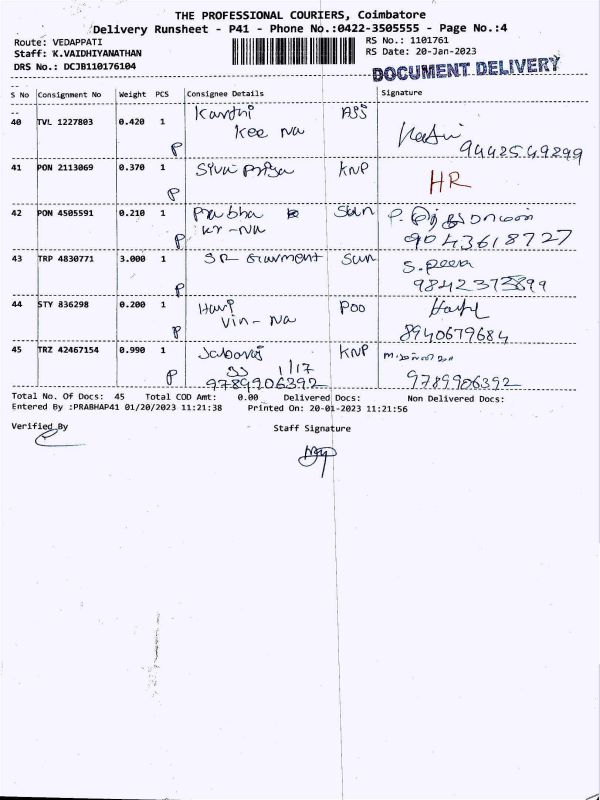 THE PROFESSIONAL COURIERS, Coimbatore
Delivery Runsheet - P41 - Phone No.:0422-3505555 - Page No.:4
Route: VEDAPPATI
RS No.: 1101761
Staff: K.VAIDHIYANATHAN
RS Date: 20-Jan-2023
DRS No.: DCJB110176104
DOCUMENT DELIVERY
S No Consignment No Weight PCS Consignee Details Signature
40 TVL 1227803 0.420 1 P Kanthi
Kee Na
9442549299
41 PON 2113069 0.370 1 P Siva priya KNP HR
42 PON 4505591 0.210 1 P Prabha Sun P.
Kr -Na 9043618727
43 TRP 4830771 3.000 1 P SR Garment Sun S.
9842373899
44 STY 836298 0.200 1 P Hari Poo
Vin - Na 8940679684
45 TRZ 42467154 0.990 1 P KNP
1/17
9789906392 9789906392
Total No. Of Docs: 45 Total COD Amt: 0.00 Delivered Docs: Non Delivered Docs:
Entered By :PRABHAP41 01/20/2023 11:21:38 Printed On: 20-01-2023 11:21:56
Verified By Staff Signature